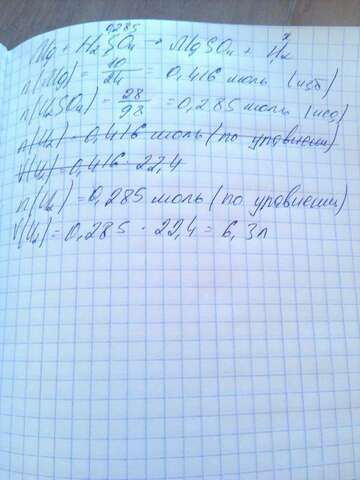 0,285 x
Mg + H2SO4 → MgSO4 + H2
n(Mg) = 10/24 = 0,416 моль (изб)
n(H2SO4) = 28/98 = 0,285 моль (нед)
n(H2) = 0,416 моль (по уравнении)
V(H2) = 0,416 · 22,4
n(H2) = 0,285 моль (по уравнении)
V(H2) = 0,285 · 22,4 = 6,3л